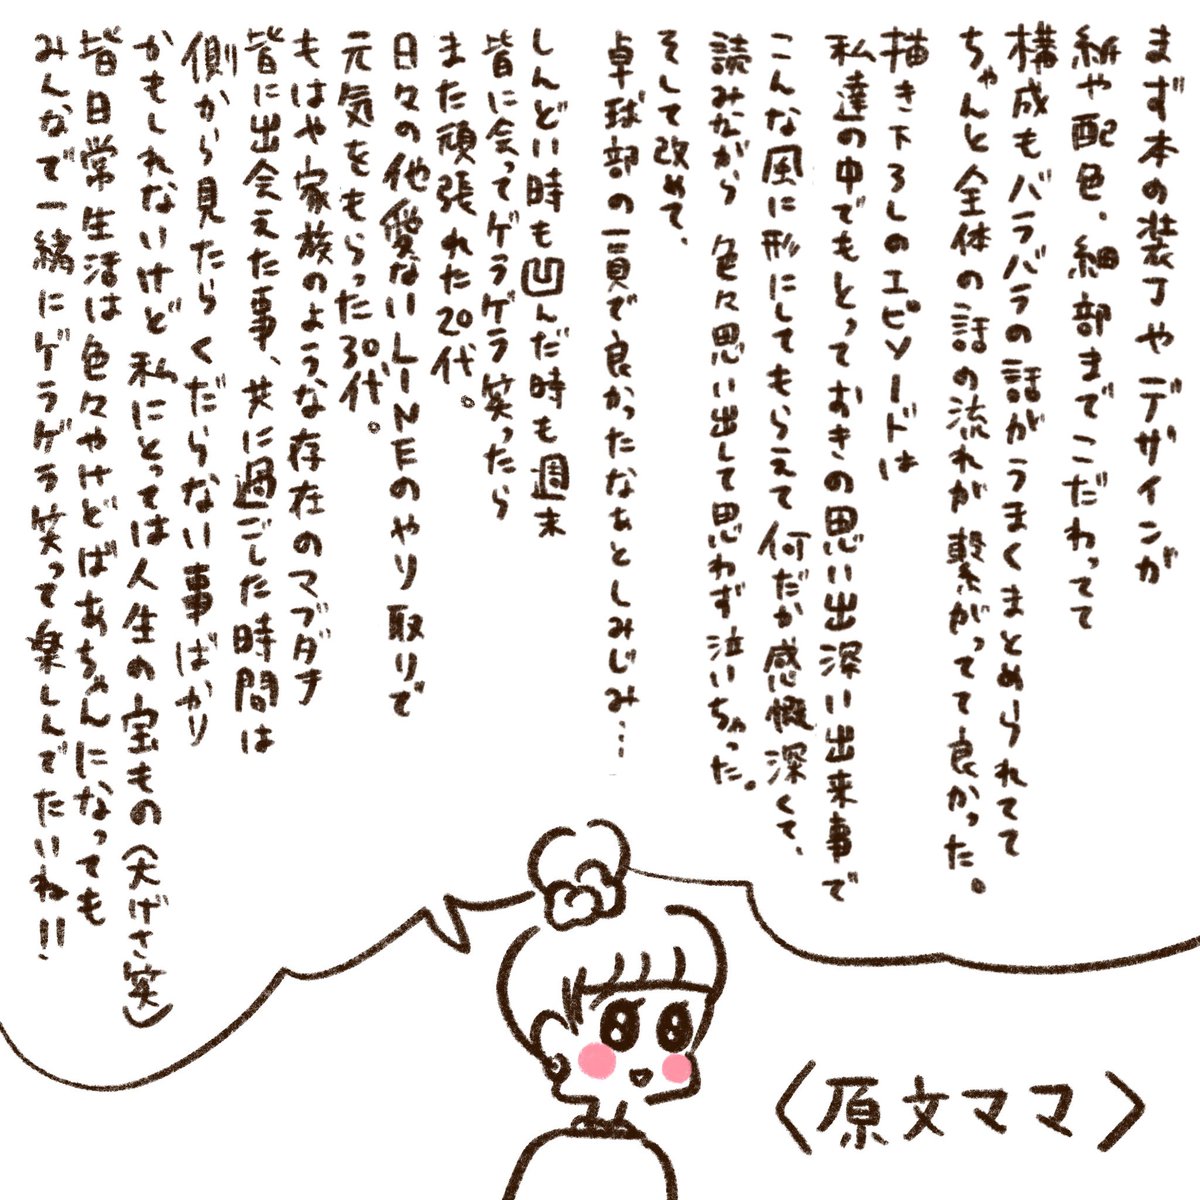 まず本の装丁やデザインが
紙や配色、細部までこだわってて
構成もバラバラの話がうまくまとめられてて
ちゃんと全体の話の流れが繋がってて良かった。
描き下ろしのエピソードは
私達の中でもとっておきの思い出深い出来事で
こんな風に形にしてもらえて何だか感慨深くて、
読みながら色々思い出して思わず泣いちゃった。
そして改めて、
卓球部の一員で良かったなぁとしみじみ…
しんどい時も凹んだ時も週末
皆に会ってゲラゲラ笑ったら
また頑張れた20代。
日々の他愛ないLINEのやり取りで
元気をもらった30代。
もはや家族のような存在のマブダチ
皆に出会えた事、共に過ごした時間は
側から見たらくだらない事ばかり
かもしれないけど私にとっては人生の宝もの(大げさ笑)
皆日常生活は色々やけどばあちゃんになっても
みんなで一緒にゲラゲラ笑って楽しんでたいね!!
〈原文ママ〉